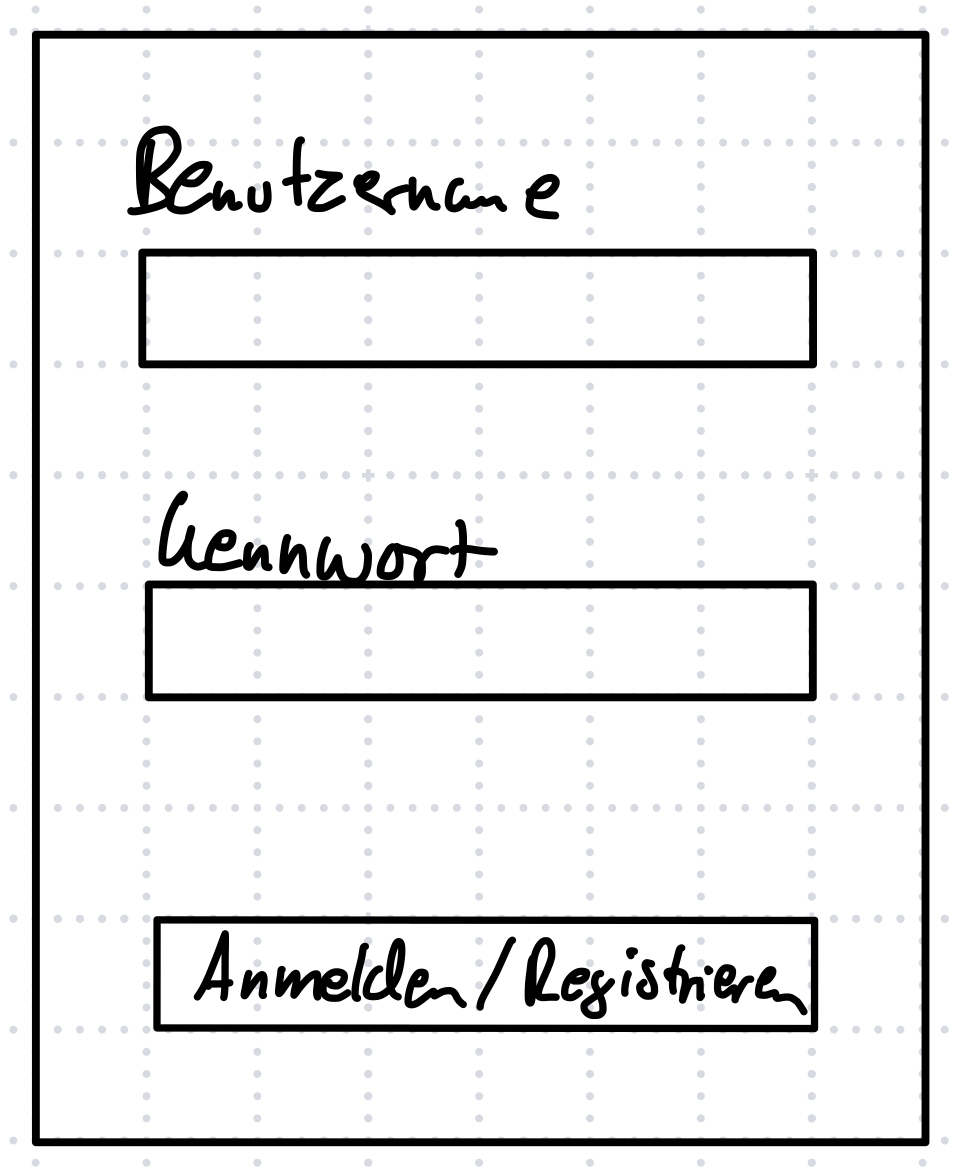 Benutzername
Kennwort
Anmelden/Registrieren